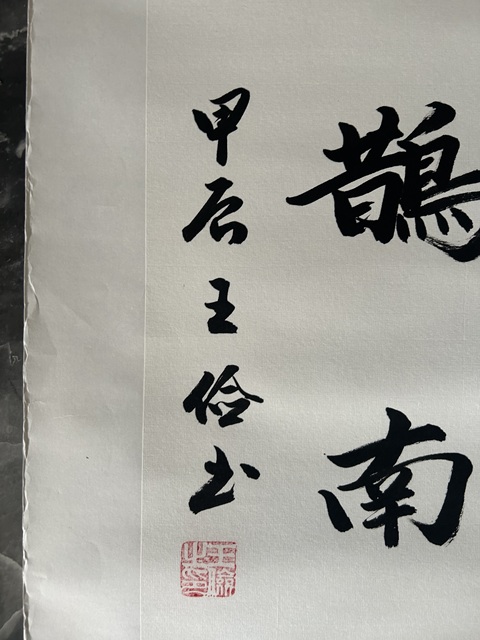 鵲南
甲辰王俭书